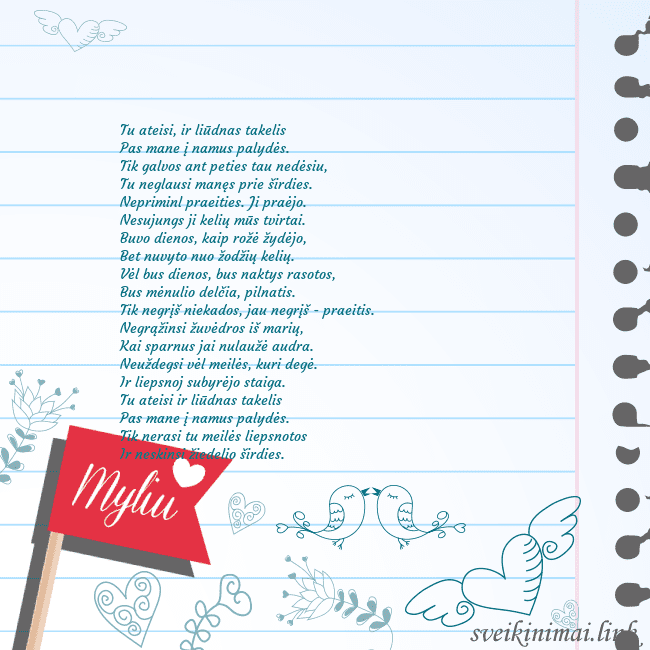 Tu ateisi, ir liūdnas takelis
Pas mane į namus palydės.
Tik galvos ant peties tau nedėsiu,
Tu neglausi manęs prie širdies.
Nepriminl praeities. Ji praėjo.
Nesujungs ji kelių mūs tvirtai.
Buvo dienos, kaip rožė žydėjo,
Bet nuvyto nuo žodžių kelių.
Vėl bus dienos, bus naktys rasotos,
Bus mėnulio delčia, pilnatis.
Tik negrįš niekados, jau negrįš - praeitis.
Negrąžinsi žuvėdros iš marių,
Kai sparnus jai nulaužė audra.
Neuždegsi vėl meilės, kuri degė.
Ir liepsnoj subyrėjo staiga.
Tu ateisi ir liūdnas takelis
Pas mane į namus palydės.
Tik nerasi tu meilės liepsnotos
Ir neskinsi žiedelio širdies.
Myliu
sveikinimai.link